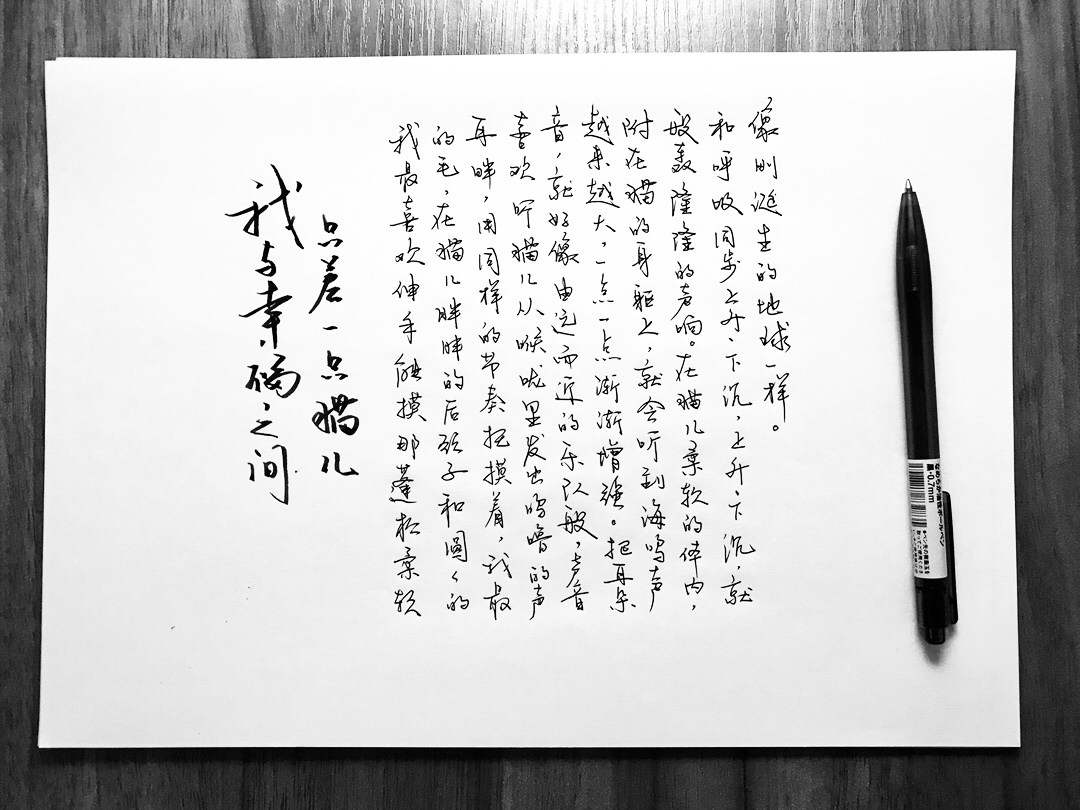 我与幸福之间
只差一只猫儿
我最喜欢伸手触摸那蓬松柔软
的毛,在猫儿胖胖的后颈子和圆々的
耳畔,用同样的节奏抚摸着,我最
喜欢听猫儿从喉咙里发出呜噜的声
音,就好像由远而近的乐队般,声音
越来越大,一点一点渐渐增强。把耳朵
附在猫的身躯上,就会听到海鸣声
般轰隆隆的声响。在猫儿柔软的体内,
和呼吸同步上升、下沉,上升下沉,就
像刚诞生的地球一样。
なめらか油性ボールペン
黒・0.7mm